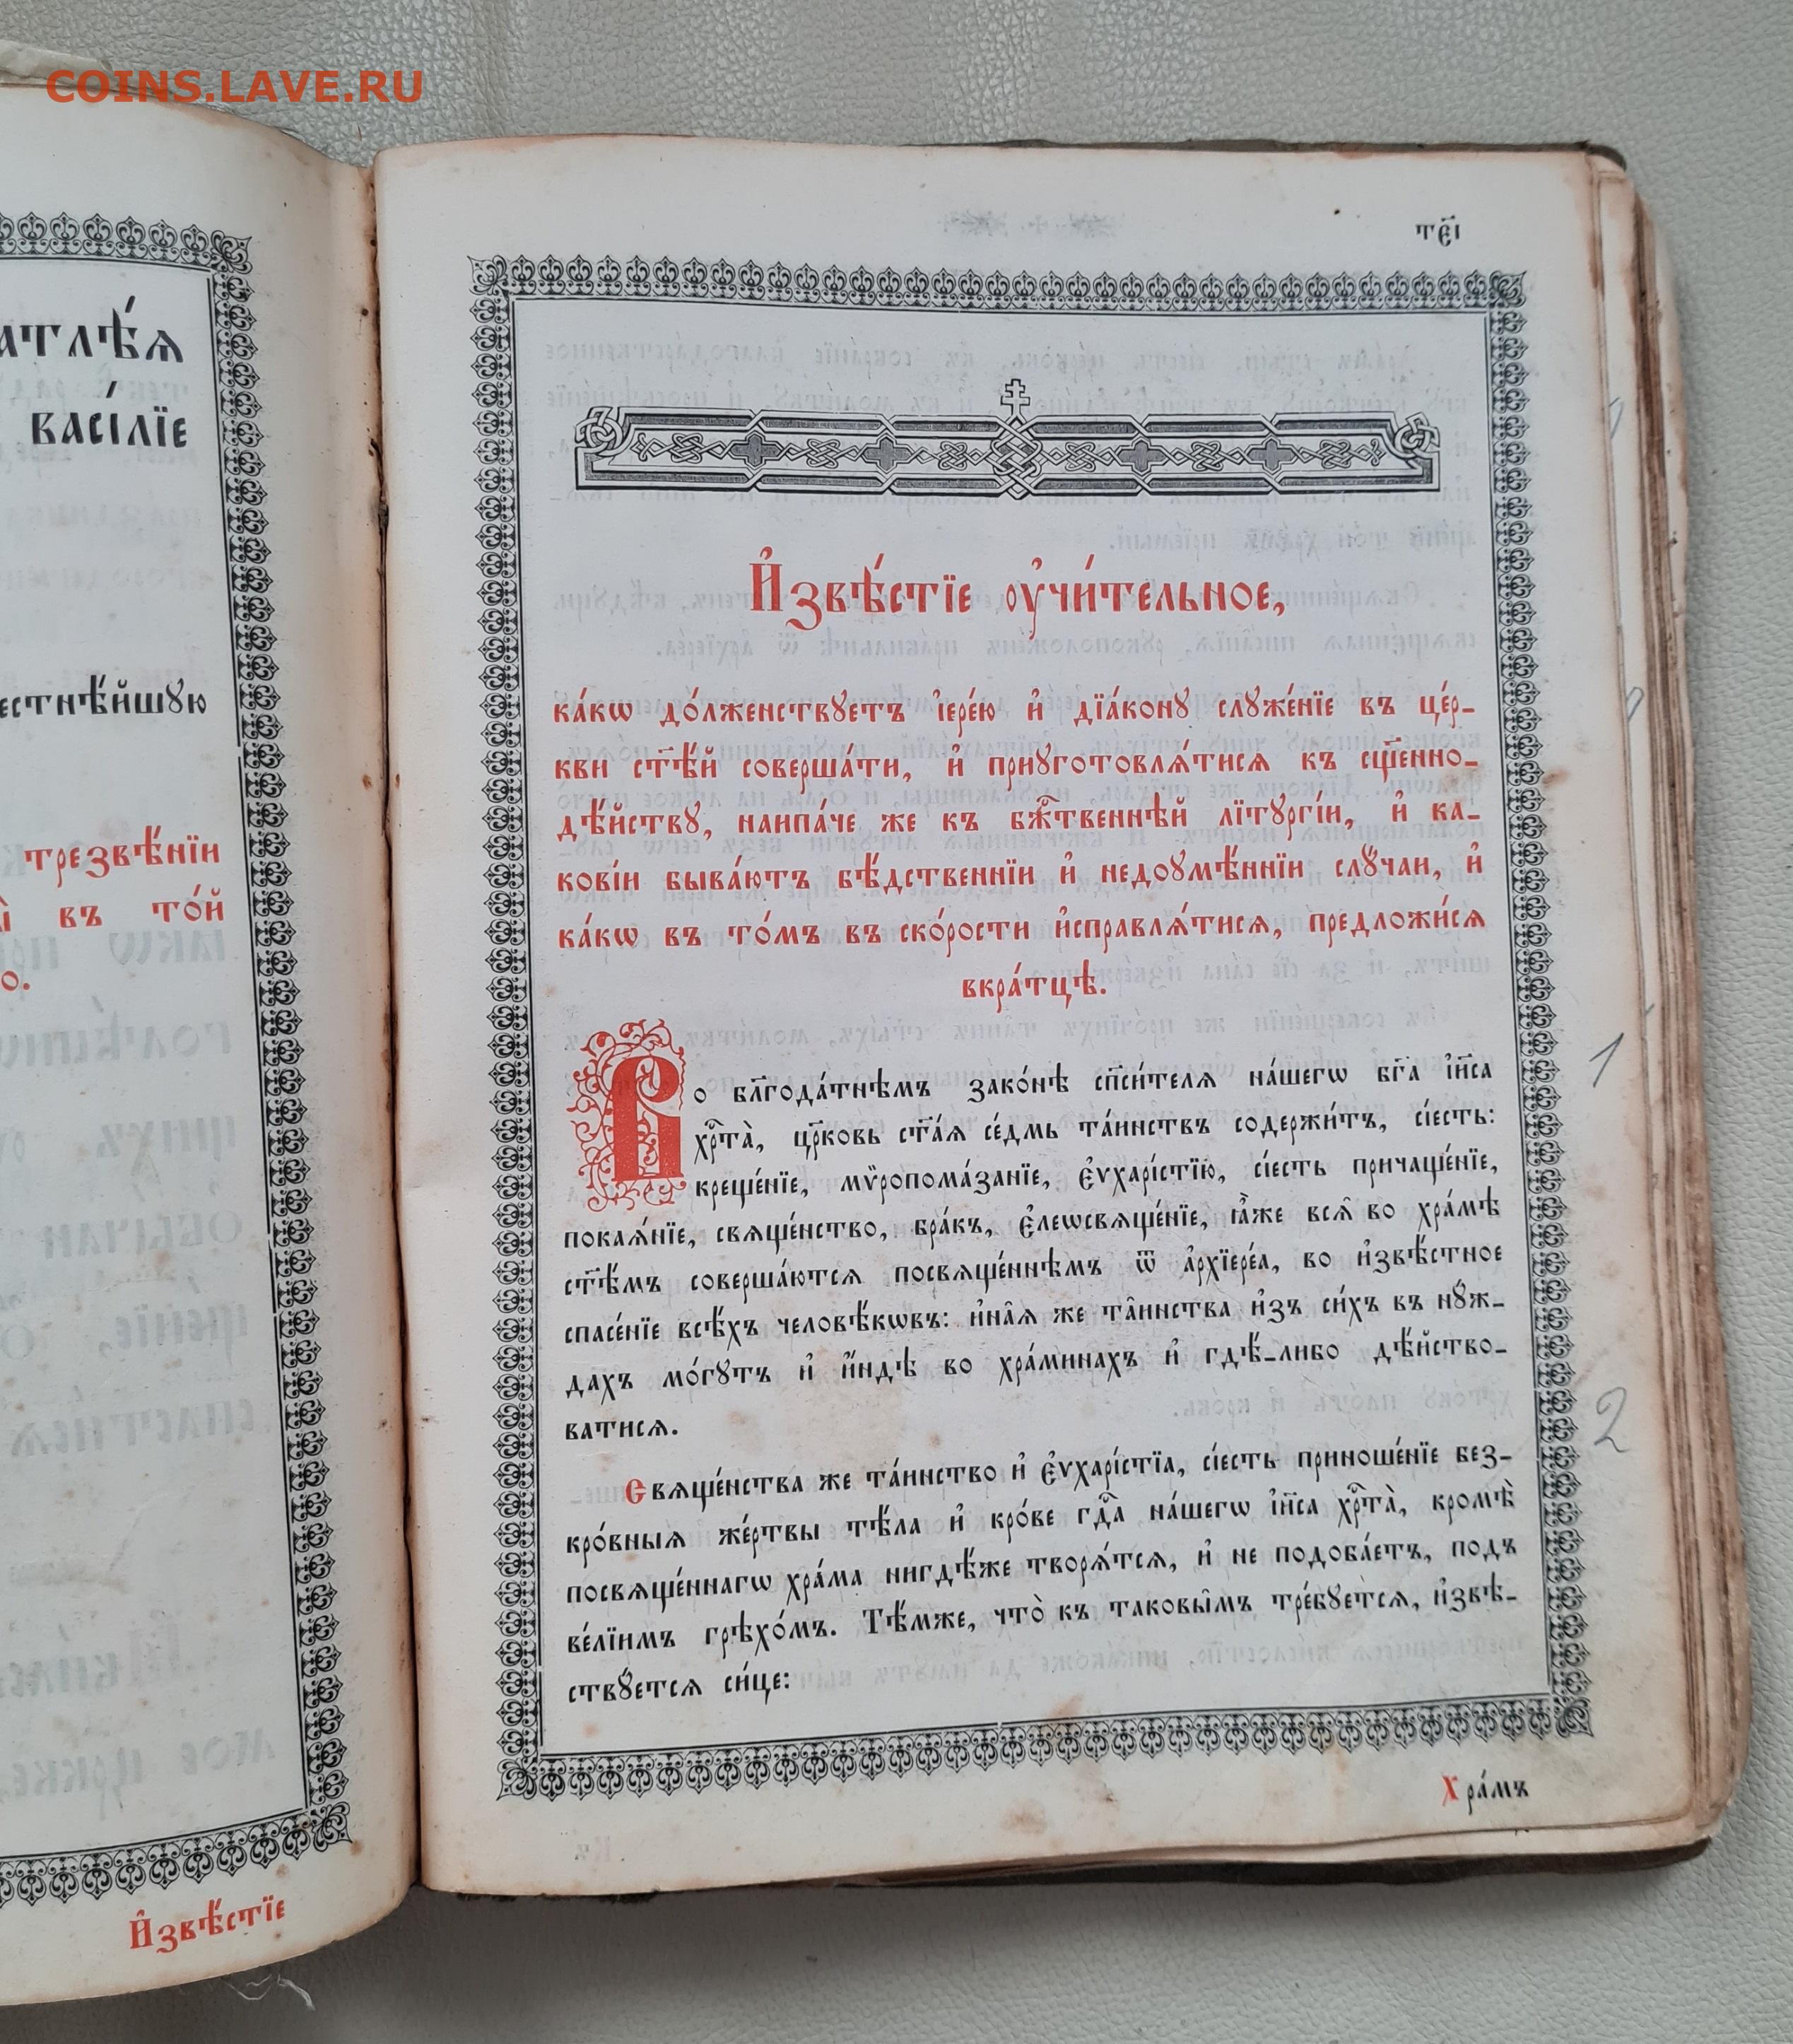 COINS.LAVE.RU
атлѣ́ѧ
васі́лїе
естнѣ́йшꙋю
трезвѣ́нїи
въ то́й
о.
И҆звѣ́стїе
т҃еі
И҆звѣ́стїе ᲂу҆чи́тельное,
ка́кѡ до́лженствꙋетъ і҆ере́ю и҆ дїа́конꙋ слꙋже́нїе въ це́р-
кви ст҃ѣ́й соверша́ти, и҆ приꙋготовлѧ́тисѧ къ сщ҃енно-
дѣ́йствꙋ, наипа́че же къ бж҇твеннѣй лїтꙋргі́и, и҆ ка-
кові́и быва́ютъ бѣ́дственнїи и҆ недоꙋмѣ́ннїи слꙋ́чаи, и҆
ка́кѡ въ то́мъ въ ско́рости и҆справлѧ́тисѧ, предложи́сѧ
вкра́тцѣ.
Во бл҃года́тнѣмъ зако́нѣ сп҃си́телѧ на́шегѡ бг҃а і҆и҃са
хрⷭ҇та̀, цр҃ковь ст҃а́ѧ се́дмь та́инствъ содержи́тъ, сі́есть:
креще́нїе, мѵ̈ропома́занїе, є҆ѵхарі́стїю, сі́есть причаще́нїе,
покаѧ́нїе, свѧще́нство, бра́къ, є҆леѡсвѧще́нїе, ꙗ҆̀же всѧ̑ во хра́мѣ
ст҃ѣ́мъ соверша́ютсѧ посвѧще́ннѣмъ ѿ а҆рхїере́а, во и҆звѣ́стное
спасе́нїе всѣ́хъ человѣ́кѡвъ: и҆на̑ѧ же та̑инства и҆зъ си́хъ въ нꙋ́ж-
дахъ мо́гꙋтъ и҆ и҆́ндѣ во хра́минахъ и҆ гдѣ́-либо дѣ́йство-
ватисѧ.
Свѧще́нства же та́инство и҆ є҆ѵхарі́стїа, сі́есть приноше́нїе без-
кро́вныѧ же́ртвы тѣ́ла и҆ кро́ве гдⷭ҇а на́шегѡ і҆и҃са хрⷭ҇та̀, кромѣ̀
посвѧще́ннагѡ хра́ма нигдѣ́же творѧ́тсѧ, и҆ не подоба́етъ, подъ
ве́лїимъ грѣхо́мъ. Тѣ́мже, что̀ къ таковы̑мъ тре́бꙋетсѧ, и҆звѣ-
ствꙋ́етсѧ си́це:
Хра́мъ
1
2